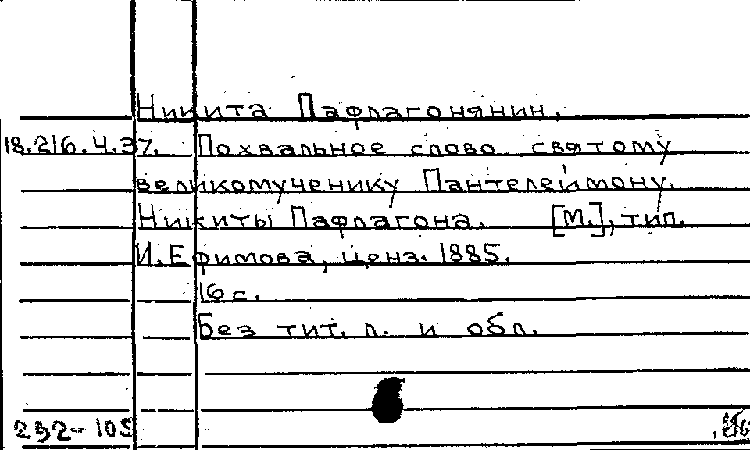 Никита Пафлагонянин.
18.216.4.37. Похвальное слово святому
великомученику Пантелеймону.
Никиты Пафлагона. [М.], тип.
И. Ефимова, ценз. 1885.
16 с.
Без тит. л. и обл.
292-105